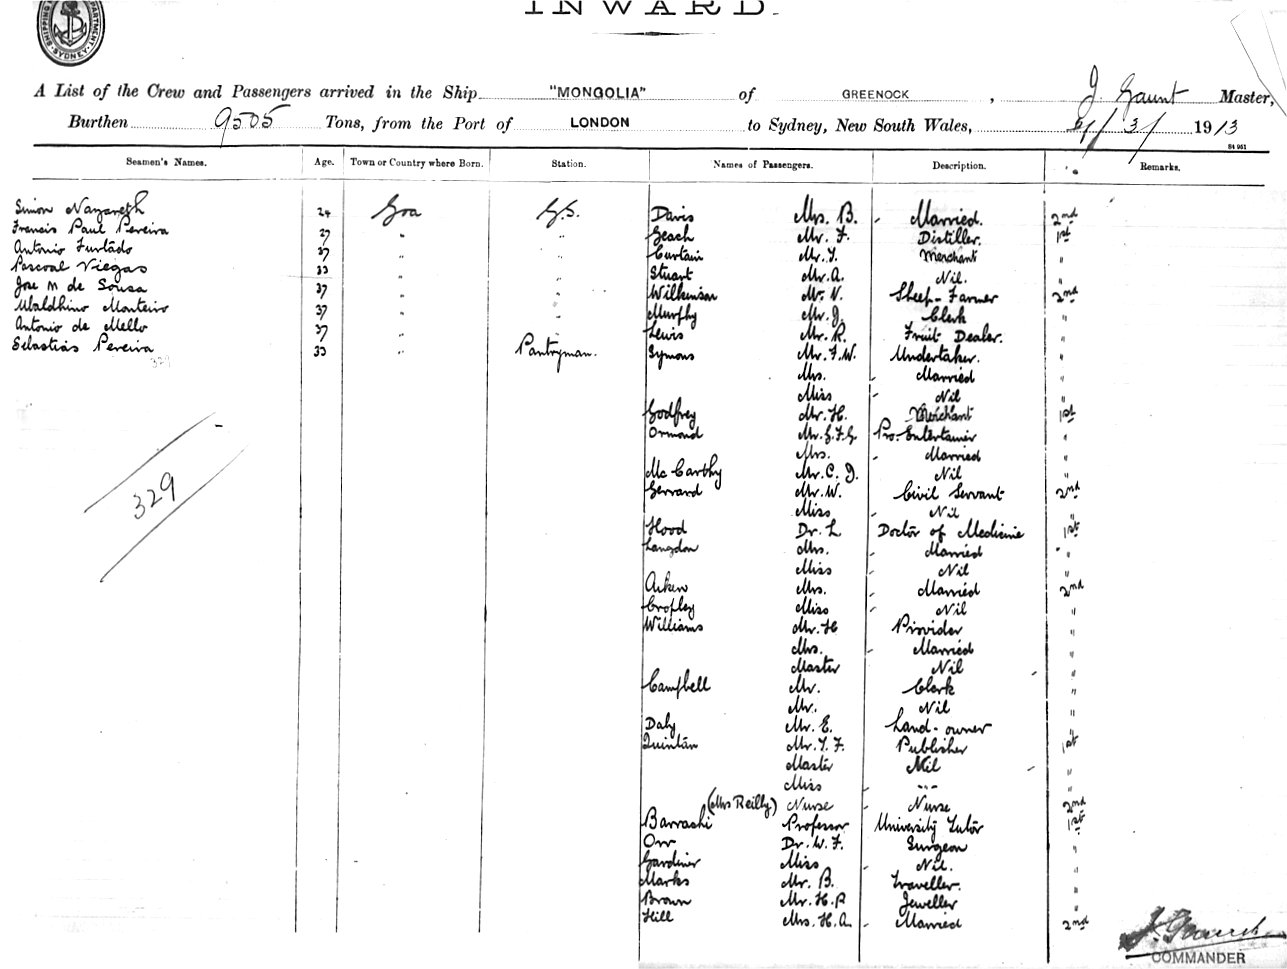 INWARD.
SYDNEY
A List of the Crew and Passengers arrived in the Ship "MONGOLIA" of GREENOCK, J. Gaunt Master,
Burthen 9505 Tons, from the Port of LONDON to Sydney, New South Wales, /3/ 1913
Seamen's Names. Age. Town or Country where Born. Station. Names of Passengers. Description. Remarks.
Simon Nazareth 24 Goa G.S. Davis Mrs. B. Married. 2nd
Francis Paul Pereira 27 " " Geach Mr. F. Distiller. 1st
Antonio Furtado 37 " " Curtain Mr. Merchant "
Pascoal Viegas 33 " " Stuart Mr. A. Nil. "
Jose M de Sousa 37 " " Wilkinson Mr. N. Sheep-Farmer 2nd
Ubaldhino Monteiro 37 " " Murphy Mr. J. Clerk "
Antonio de Mello 37 " " Lewis Mr. R. Fruit Dealer. "
Sebastiao Pereira 33 " Pantryman. Symons Mr. F. W. Undertaker. "
329 Mrs. Married "
Miss Nil "
Godfrey Mr. H. Merchant 1st
Ormond Mr. Pro. Entertainer "
Mrs. Married "
Mc Carthy Mr. C. J. Nil "
329 Gerrard Mr. W. Civil Servant 2nd
Miss Nil "
Hood Dr. L Doctor of Medicine 1st
Langdon Mrs. Married "
Miss Nil "
Aiken Mrs. Married 2nd
Cropley Miss Nil "
Williams Mr. H Provider "
Mrs. Married "
Master Nil "
Campbell Mr. Clerk "
Mr. Nil "
Daly Mr. E. Land-owner "
Quintan Mr. Publisher 1st
Master Nil "
Miss --- "
(Mrs Reilly) Nurse Nurse 2nd
Barrachi Professor University Tutor 1st
Orr Dr. W. F. Surgeon "
Gardiner Miss Nil. "
Marks Mr. B. Traveller. "
Brown Mr. H. P Jeweller "
Hill Mrs. H. A. Married 2nd
J. Gaunt
COMMANDER